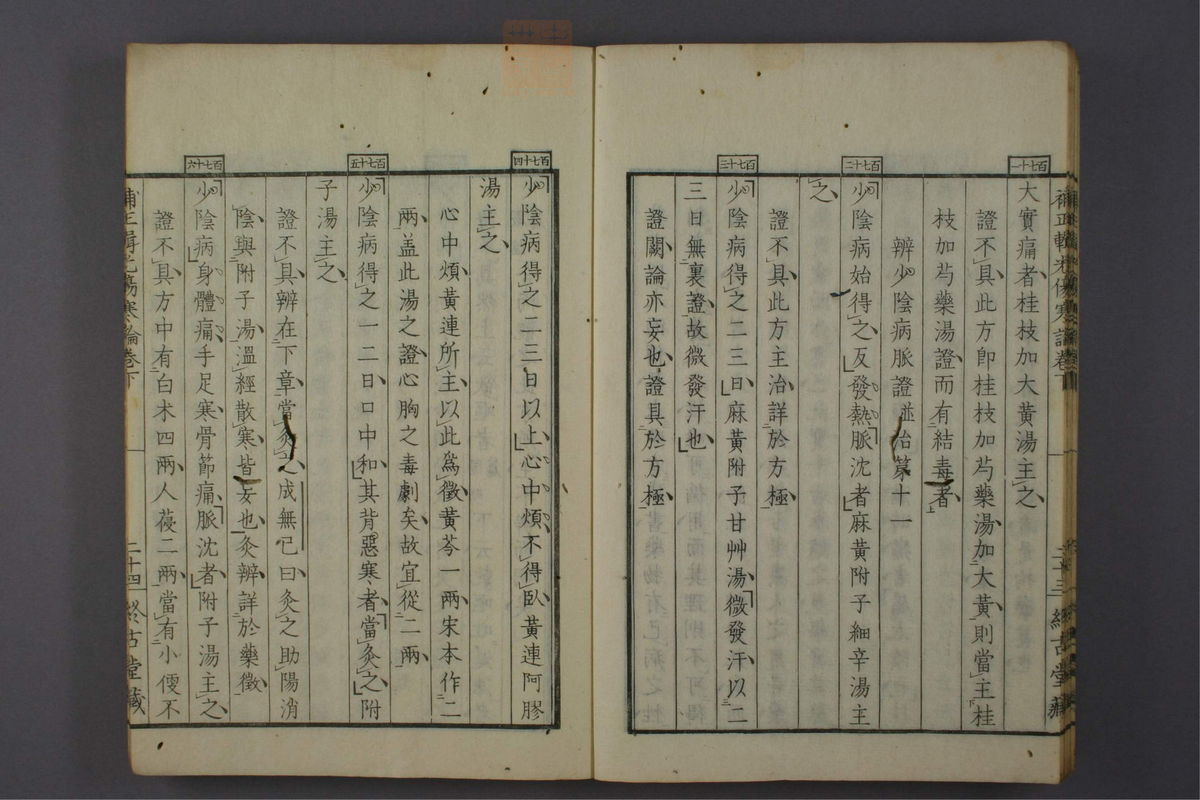 補正輯光傷寒論卷下
二十三
終古堂藏
百七十一
大實痛者桂枝加大黃湯主之
證不具此方卽桂枝加芍藥湯加大黃則當主桂
枝加芍藥湯證而有結毒者
辨少陰病脈證並治第十一
百七十二
少陰病始得之反發熱脈沈者麻黃附子細辛湯主
之
證不具此方主治詳於方極
百七十三
少陰病得之二三日麻黃附子甘艸湯微發汗以二
三日無裏證故微發汗也
證闕論亦妄也證具於方極
百七十四
少陰病得之二三日以上心中煩不得臥黃連阿膠
湯主之
心中煩黃連所主以此爲徵黃芩一兩宋本作二
兩盖此湯之證心胸之毒劇矣故宜從二兩
百七十五
少陰病得之一二日口中和其背惡寒者當灸之附
子湯主之
證不具辨在下章當灸之成無已曰灸之助陽消
陰與附子湯溫經散寒皆妄也灸辨詳於藥徵
百七十六
少陰病身體痛手足寒骨節痛脈沈者附子湯主之
證不具方中有白朮四兩人葠二兩當有小便不
補正輯光傷寒論卷下
二十四
終古堂藏